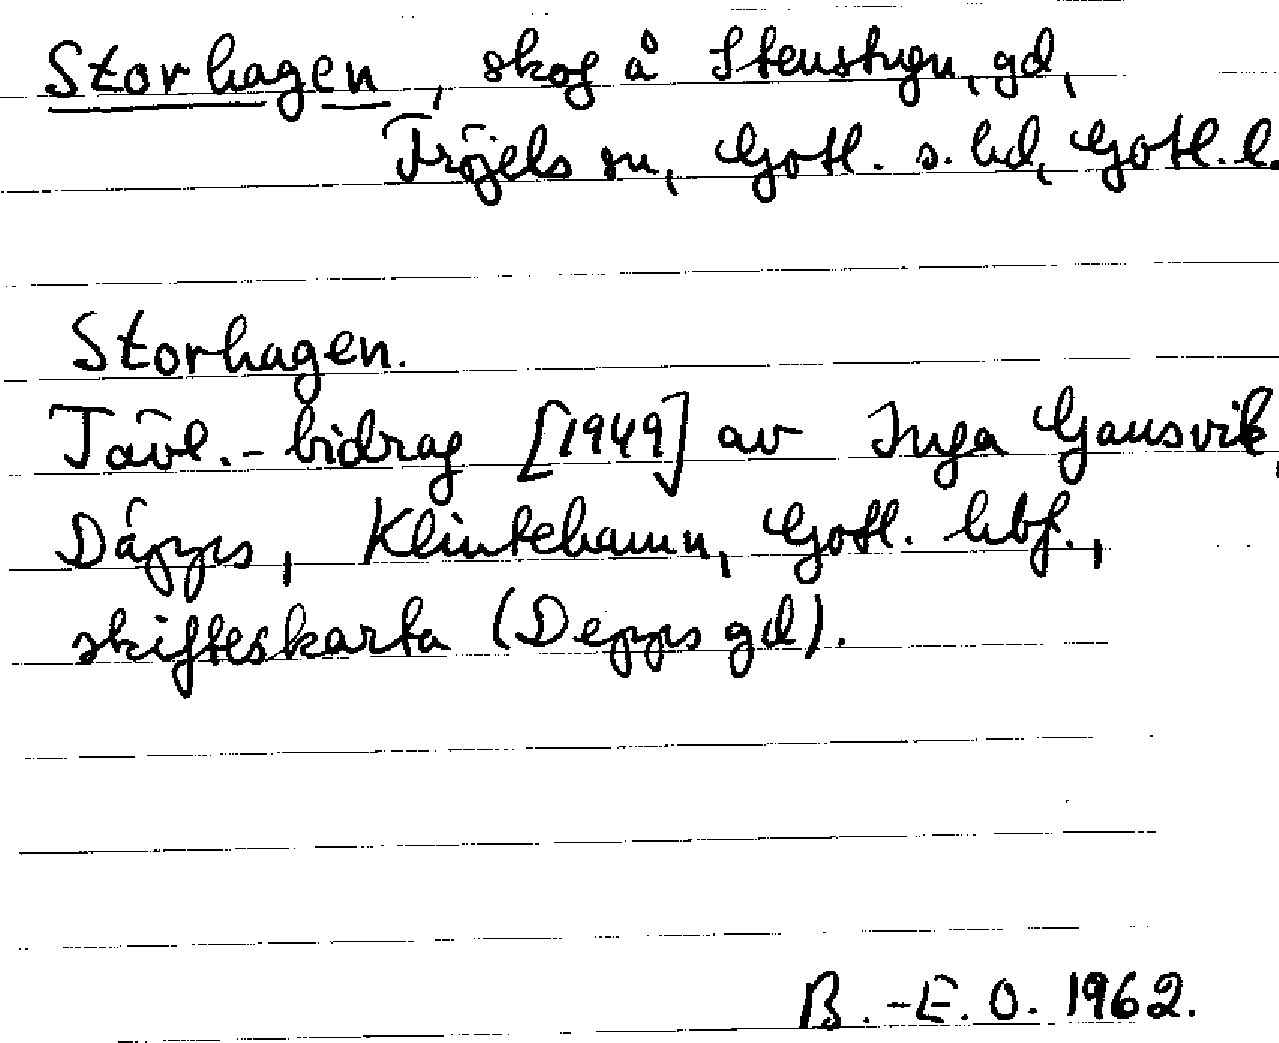 Storhagen, skog å Stenstugu, gd,
Fröjels sn, Gotl. s. hd, Gotl. l.
Storhagen.
Tävl.-bidrag [1949] av Inga Gansvik,
Däpps, Klintehamn, Gotl. hbf.,
skifteskarta (Depps gd).
B.-E. O. 1962.